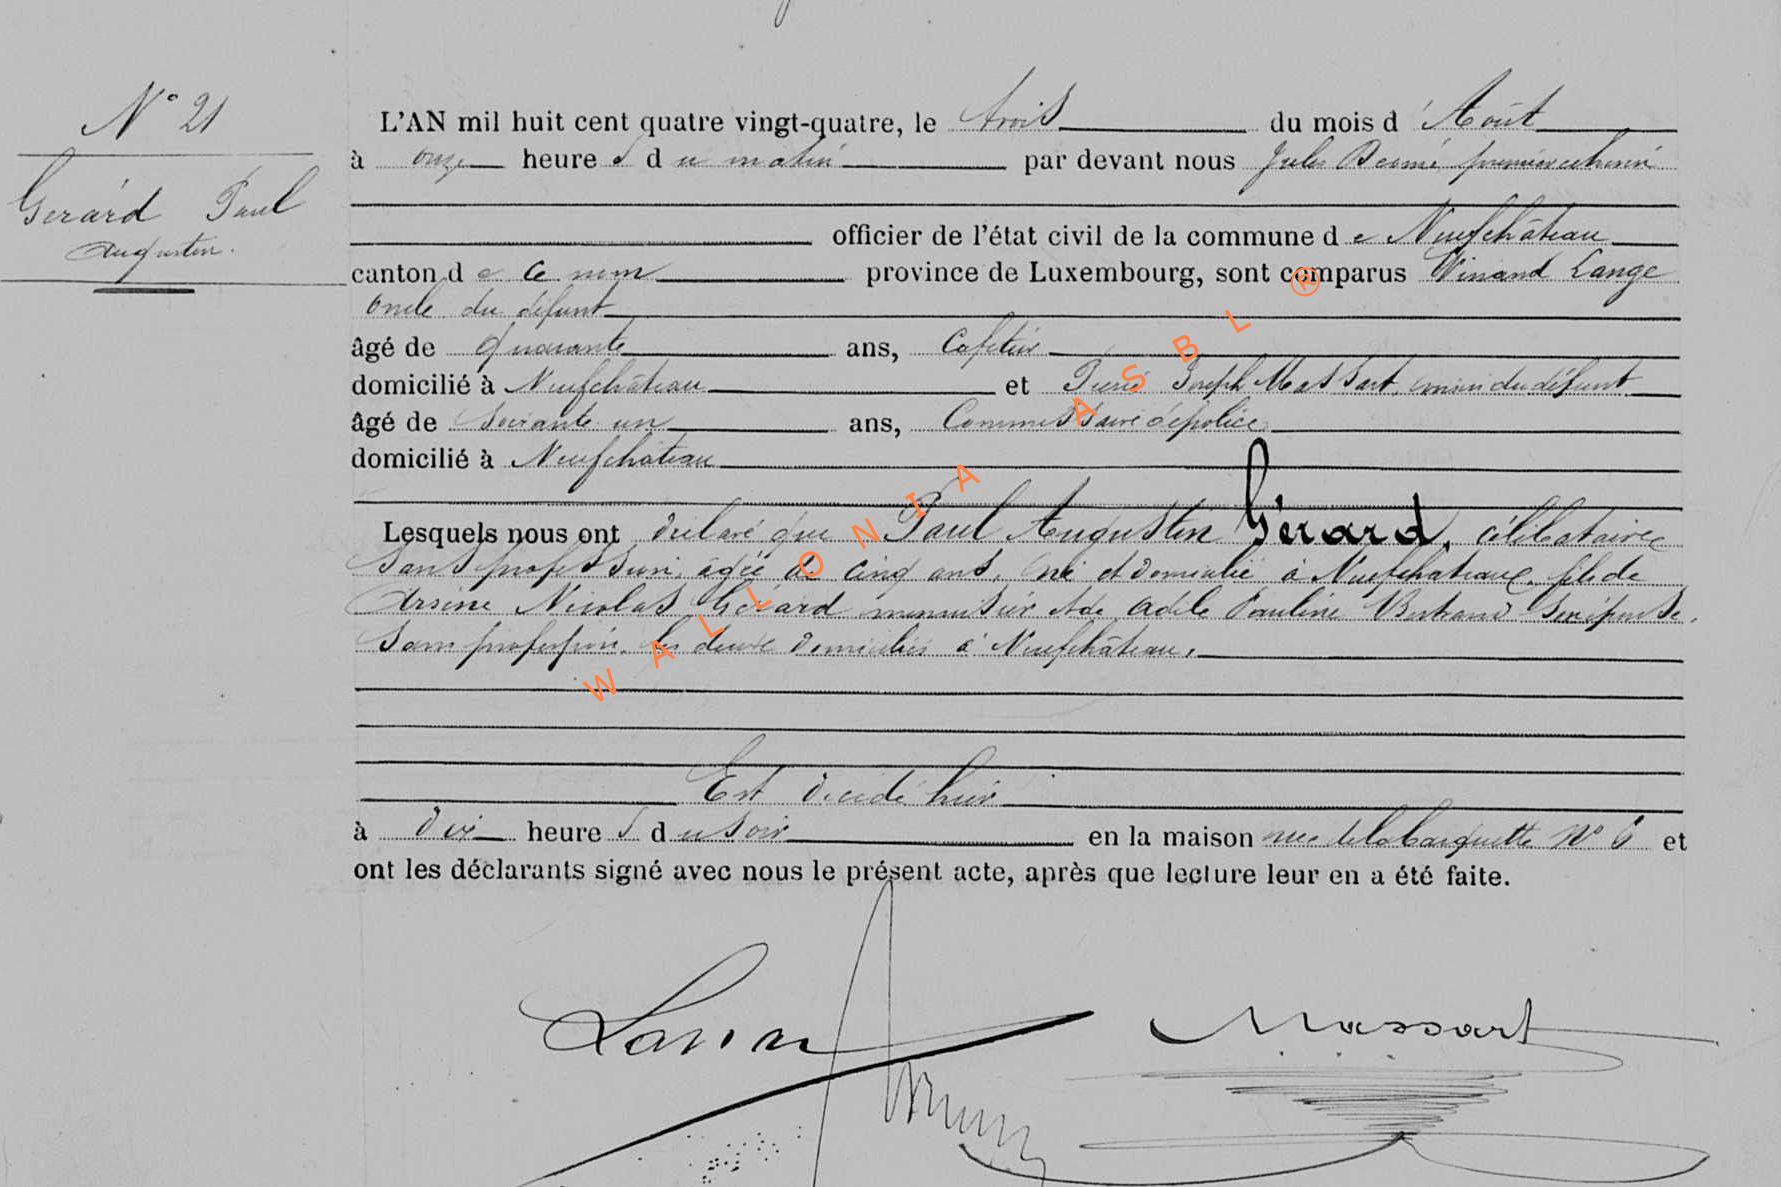 N° 21
Gerárd Paul
Augustin.
L'AN mil huit cent quatre vingt-quatre, le trois du mois d'Août
à onze heures du matin par devant nous Jules premier échevin
officier de l'état civil de la commune de Neufchâteau
canton de ce nom province de Luxembourg, sont comparus Winand Lange
oncle du défunt
âgé de quarante ans, Cafetier
domicilié à Neufchâteau et Pierre Joseph Massart, du défunt
âgé de soixante un ans, Commissaire de police
domicilié à Neufchateau
Lesquels nous ont déclaré que Paul Augustin Gérard, célibataire
Sans profession, agée de cinq ans, né et domicilié à Neufchateau, fils de
Arsène Nicolas Gérard menuisier et de Adèle Pauline Bertrand son épouse,
Sans profession, les deux domiciliés à Neufchâteau,
Est décédé hier
à dix heures du soir en la maison rue de la barquette N° 6 et
ont les déclarants signé avec nous le présent acte, après que lecture leur en a été faite.
Massart
WALLONIA ASBL ®